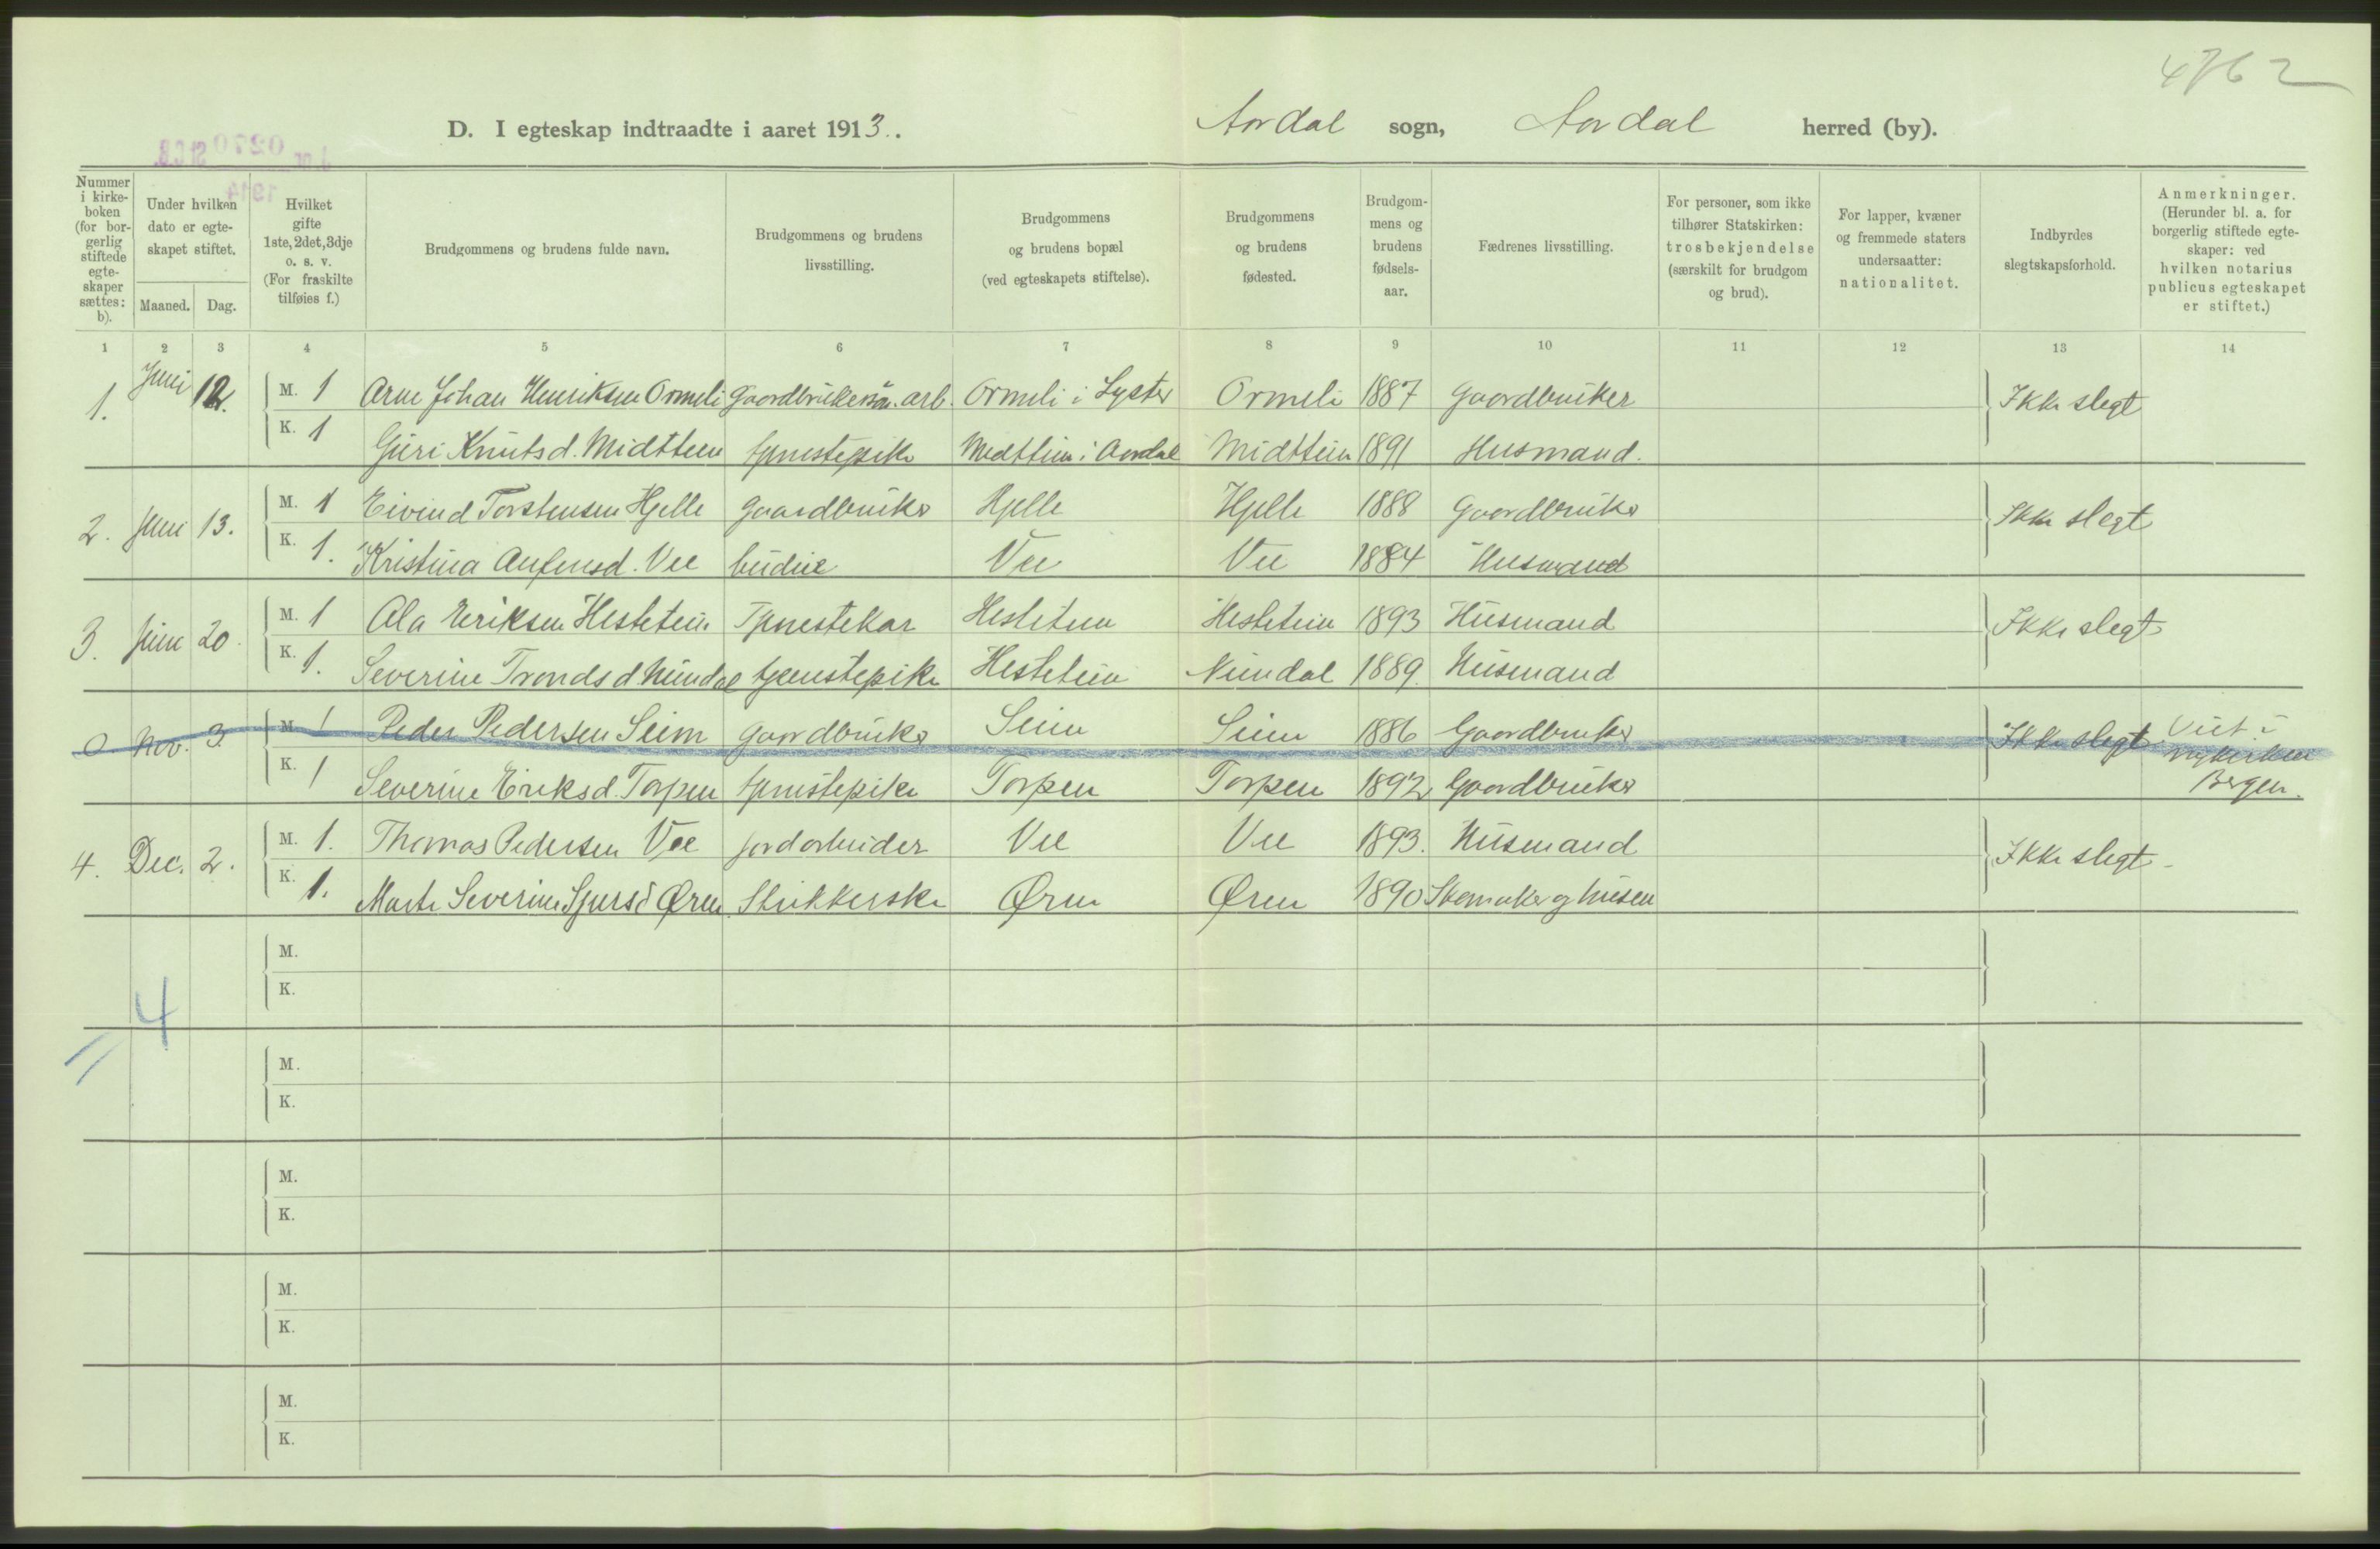 4762
D. I egteskap indtraadte i aaret 1913. Aardal sogn, Aardal herred (by).
J. nr. 0270 St.C.B.
1914
Nummer i kirkeboken (for borgerlig stiftede egteskaper sættes: b).
Under hvilken dato er egteskapet stiftet.
Maaned. Dag.
Hvilket gifte 1ste, 2det, 3dje o. s. v. (For fraskilte tilføies f.)
Brudgommens og brudens fulde navn.
Brudgommens og brudens livsstilling.
Brudgommens og brudens bopæl (ved egteskapets stiftelse).
Brudgommens og brudens fødested.
Brudgommens og brudens fødselsaar.
Fædrenes livsstilling.
For personer, som ikke tilhører Statskirken: trosbekjendelse (særskilt for brudgom og brud).
For lapper, kvæner og fremmede staters undersaatter: nationalitet.
Indbyrdes slegtskapsforhold.
Anmerkninger. (Herunder bl. a. for borgerlig stiftede egteskaper: ved hvilken notarius publicus egteskapet er stiftet.)
1 2 3 4 5 6 7 8 9 10 11 12 13 14
1. Juni 12. M. 1 Arne Johan Henriksen Ormeli Gaardbruker arb. Ormeli i Lyster Ormeli 1887 Gaardbruker Ikke slegt
K. 1 Guri Knutsd. Midttun tjenestepike Midttun i Aardal Midttun 1891 Husmand.
2. Juni 13. M. 1 Eivind Torstensen Hjelle Gaardbruker Hjelle Hjelle 1888 Gaardbruker Ikke slegt
K. 1. Kristina Anfensd. Vee budeie Vee Vee 1884 Husmand
3. Juni 20. M. 1 Ola Eriksen Hestetun Tjenestekar Hestetun Hestetun 1893 Husmand Ikke slegt
K. 1. Severine Trondsd Nundal tjenestepike Hestetun Nundal 1889. Husmand
0 Nov. 3. M. 1 Peder Pedersen Seim Gaardbruker Seim Seim 1886 Gaardbruker Ikke slegt Viet i
Nykirken
K. 1 Severine Eriksd. Torpen tjenestepike Torpen Torpen 1892 Gaardbruker Bergen.
4. Dec. 2. M. 1. Thomas Pedersen Vee jordarbeider Vee Vee 1893. Husmand Ikke slegt
K. 1. Marta Severine Sjursd Øren Strikkerske Øren Øren 1890 Skomaker og husm
M.
K.
4
M.
K.
M.
K.
M.
K.
M.
K.